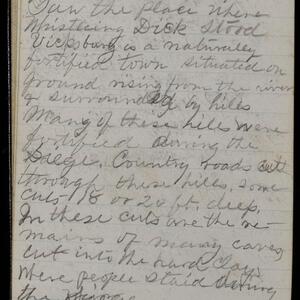 Saw the place where
Whistleing Dick Stood
Vicksburg is a naturaly
fortified town situated on
ground rising from the river
& surrounded by hills
Many of these hills were
fortified during the
Seige. Country roads cutt
through these hills, some
cuts 18 or 20 ft. deep.
In these cuts are the re-
mains of many caves
cut into the hard Clay
where people staid during
the Seige